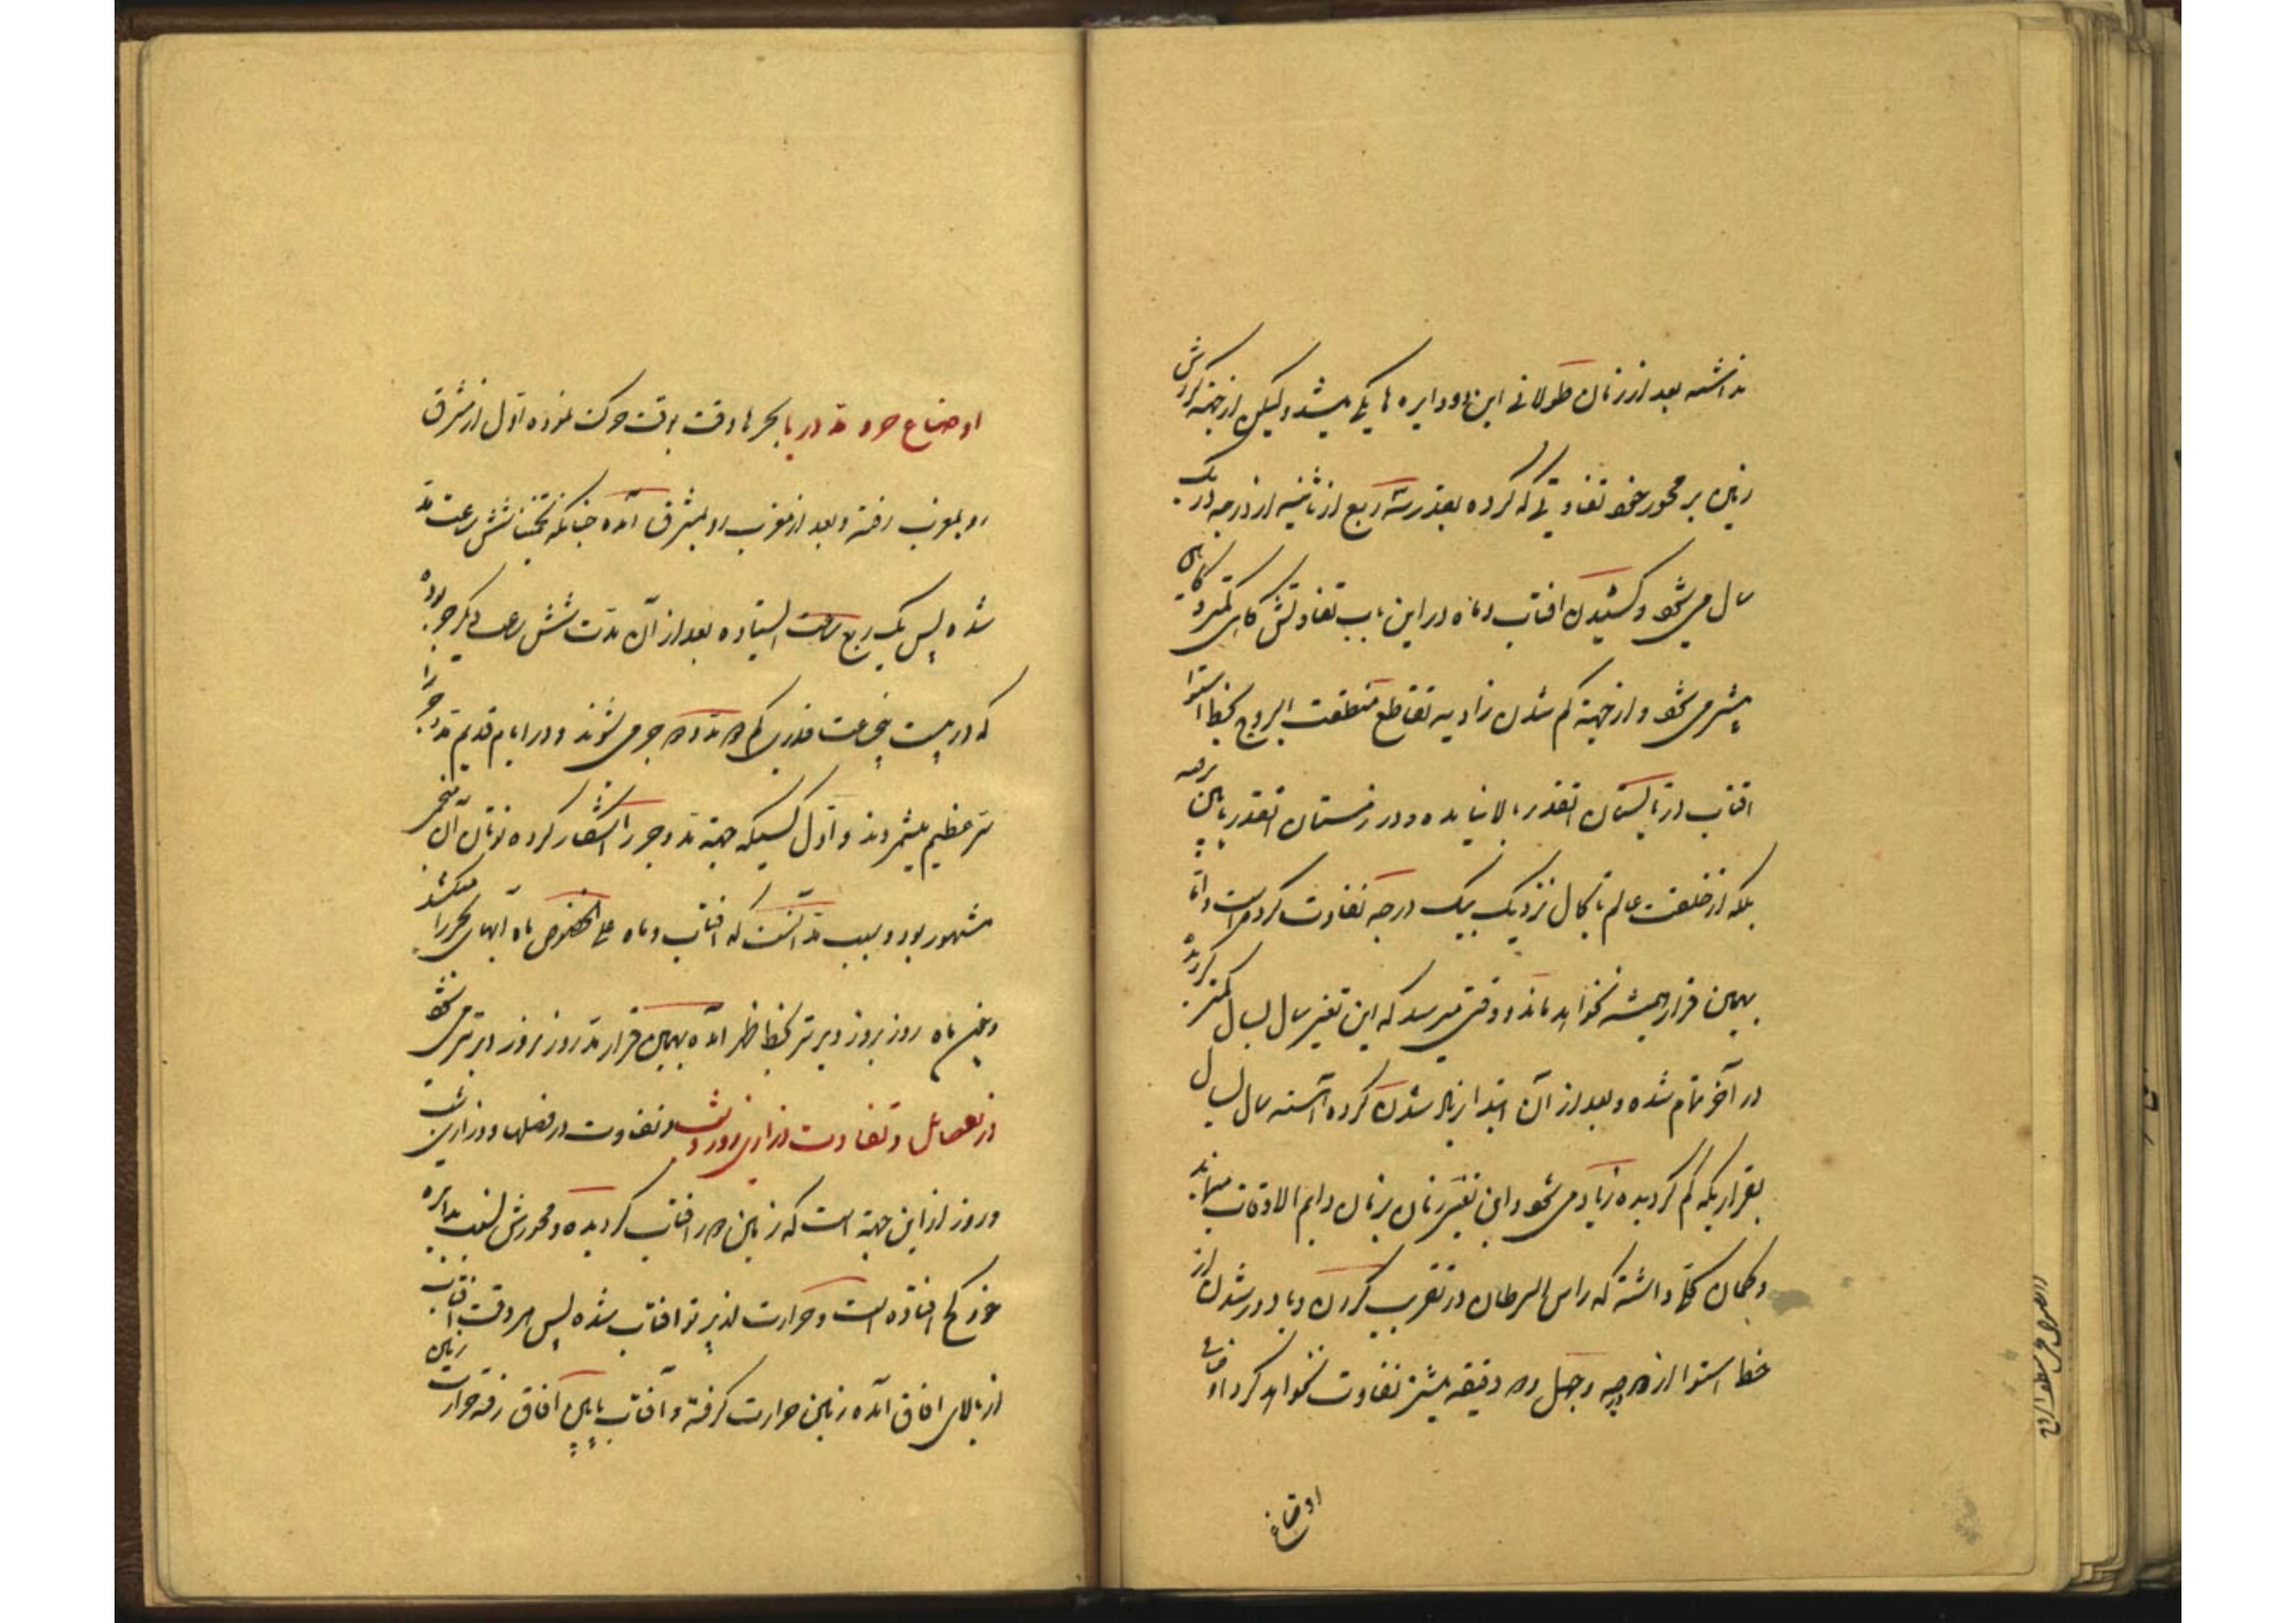 نداشته بعد از زمان طولانی این دو دایره ها یکی میشد ولیکن از جهته گردش
زمین بر محور خود تفاوتی که کرده بقدر سه ربع از ثانیه از درجه در یک
سال می شود و کشیدن افتاب و ماه در این باب تفاوتش گاهی کمتر و گاهی
بیشتر می شود و از جهته کم شدن زاویه تقاطع منطقت البروج بخط استوا
افتاب در تابستان انقدر بالا نیامده و در زمستان انقدر پایین نرفته
بلکه از خلقت عالم تا بحال نزدیک بیک درجه تفاوت کرده است و اما
بهمین قرار همیشه نخواهد ماند و وقتی میرسد که این تغیر سال بسال کمتر گردیده
در آخر تمام شده و بعد از آن ابتدا زیاد شدن کرده آهسته سال بسال
بقراریکه کم گردیده زیاد می شود و این تغیر زمان بزمان دایم الاوقات میماند
و گمان کلی داشته که راس السرطان در تقرب کردن و یا دور شدن از
خط استوا از درجه و چهل دقیقه بیشتر تفاوت نخواهد کرد
اوضاع
اوضاع جر و مد دریا بحرها وقت بوقت حرکت نموده اول از مشرق
رو بمغرب رفته و بعد از مغرب رو بمشرق آمده چنانکه تخمینا شش ساعت مد
شده پس یک ربع ساعت ایستاده بعد از آن مدت شش ساعت دیگر جر بوده
که در بیست پنج ساعت قدری کم مد و جر می شوند و در ایام قدیم مد و جر را
سر عظیم میشمردند و اول کسیکه جهته مد و جر را اشکار کرده نوتان آن منجم
مشهور بود و سبب مد آنست که افتاب و ماه علی الخصوص ماه آبهای بحر را میکشد
و چون ماه روز بروز دیرتر بخط ظهر آمده بهمین قرار مد روز بروز دیرتر می شود
در تفصیل و تفاوت درازی روز و شب و تفاوت در فصلها و درازی شب
و روز از این جهته است که زمین دور افتاب گردیده و محورش نسبت بدایره
خود کج افتاده است و حرارت پذیر از افتاب شده پس هر وقت افتاب
از بالای افاق آمده زمین حرارت گرفته و آفتاب پایین آفاق رفته حرارت زمین